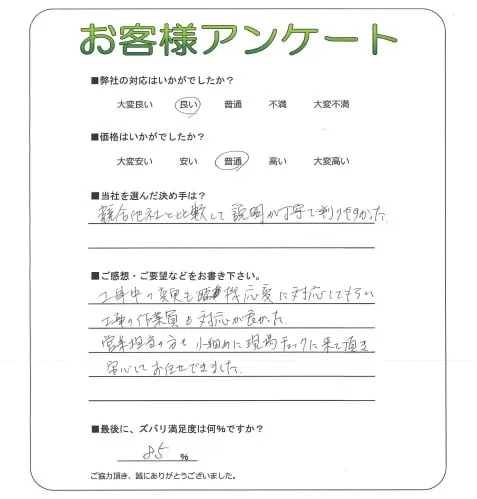 お客様アンケート
■弊社の対応はいかがでしたか？
大変良い 良い 普通 不満 大変不満
■価格はいかがでしたか？
大変安い 安い 普通 高い 大変高い
■当社を選んだ決め手は？
競合他社と比較して説明が丁寧で判りやすかった
■ご感想・ご要望などをお書き下さい。
工事中の変更も臨機応変に対応してもらい
工事の作業員も対応が良かった.
営業担当の方も小細めに現場チェックに来て頂き
安心してお任せできました.
■最後に、ズバリ満足度は何％ですか？
85 %
ご協力頂き、誠にありがとうございました。